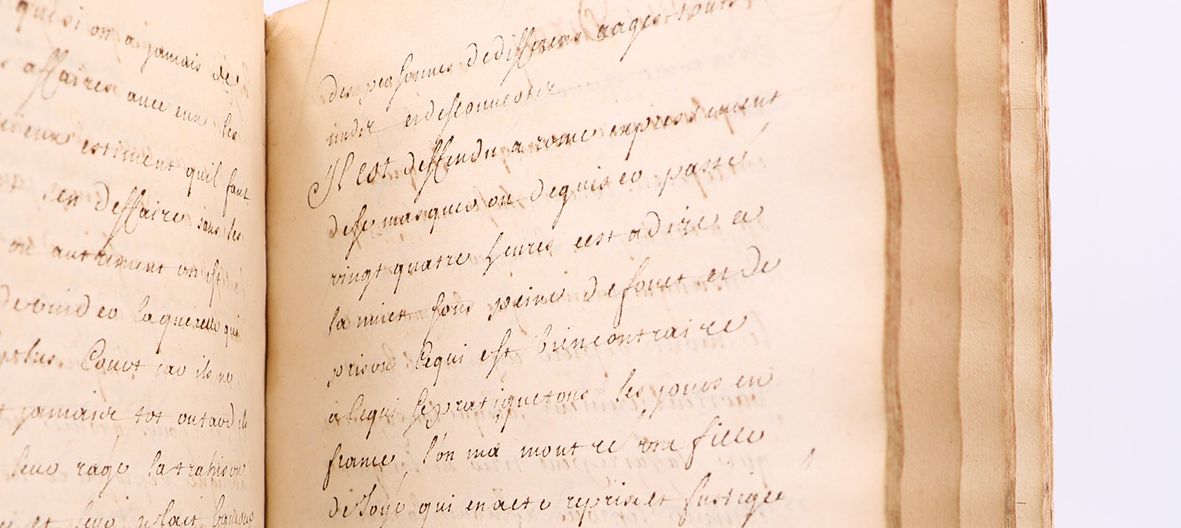 qui si on a jamais de
affaires avec eux les
estiment quil faut
en deffaire sans les
ou autrement on est
devuider la querelle qui
plus. ils ne
jamais tot ou tard ils
leur rage la trahison
et leur plait
des personnes de differens aages
Il est deffendu a rome expressement
de se masquer ou deguiser passé
vingt quatre heures cest a dire a
la nuict sous peine de fouet et de
prison Ce qui est bien contraire
a ce qui se pratique tous les jours en
france l'on ma montre une fille
de joye qui en a ete reprise et fustigee